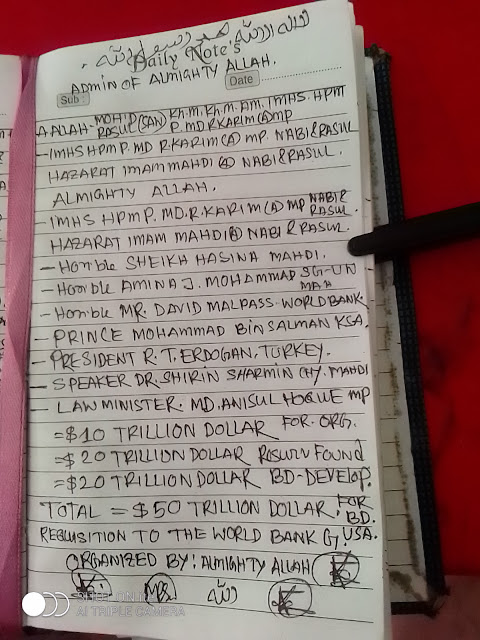 لا اله الا الله محمد رسول الله
Daily Note's
ADMIN OF ALMIGHTY ALLAH.
Sub :
Date
AALLAH- MOHD RASUL (SAN) KH.M. KH.M. AM. IMHS. HPM
P. MD. R. KARIM (A) MP
- IMHS HPM P. MD R. KARIM (A) MP. NABI & RASUL
HAZARAT IMAM MAHDI (A) NABI & RASUL.
ALMIGHTY ALLAH.
IMHS HPM P. MD. R. KARIM (A) MP NABI & RASUL.
HAZARAT IMAM MAHDI (A) NABI & RASUL.
- Hon'ble SHEIKH HASINA MAHDI.
- Hon'ble AMINA J. MOHAMMAD SG-UN
- Hon'ble MR. DAVID MALPASS-WORLD BANK
- PRINCE MOHAMMAD BIN SALMAN KSA.
- PRESIDENT R. T. ERDOGAN, TURKEY.
- SPEAKER DR. SHIRIN SHARMIN CHY. MAHDI
- LAW MINISTER. MD. ANISUL HOQUE MP
= $10 TRILLION DOLLAR FOR. ORG.
= $20 TRILLION DOLLAR Found
= $20 TRILLION DOLLAR BD-DEVELOP.
TOTAL = $50 TRILLION DOLLAR. FOR BD.
REQUISITION TO THE WORLD BANK G, USA.
ORGANIZED BY: ALMIGHTY ALLAH
الله
AI TRIPLE CAMERA